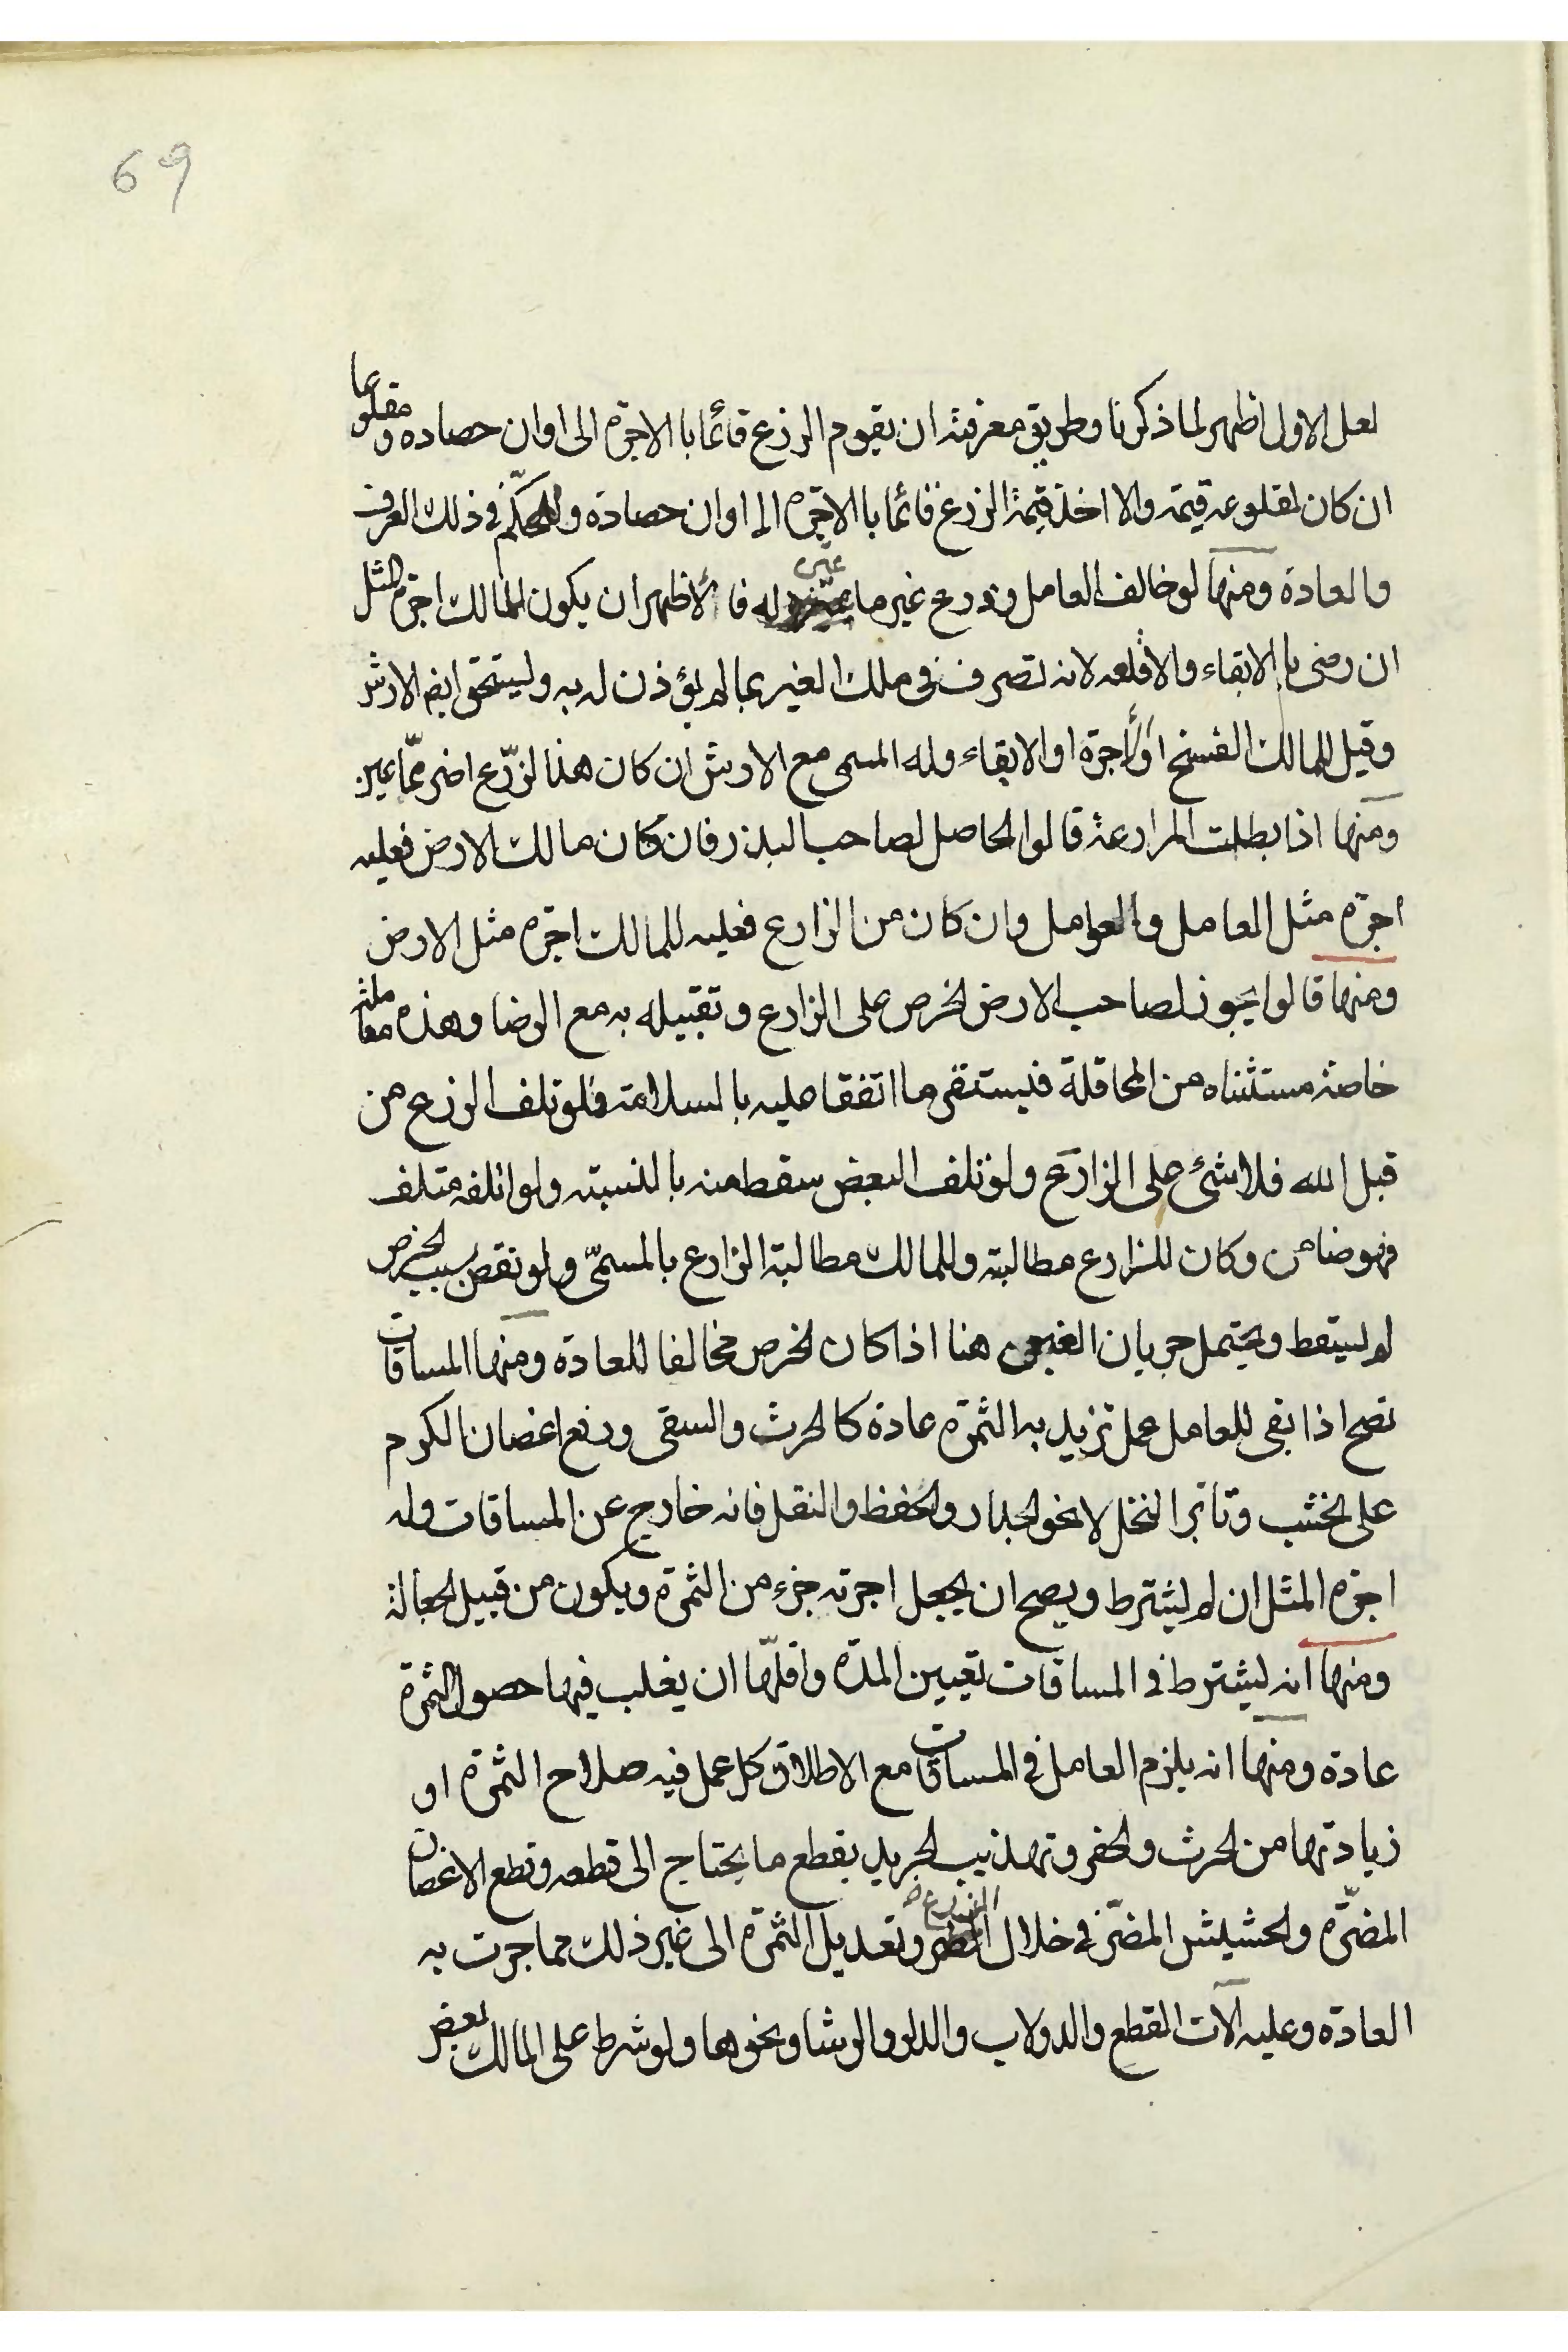 69
لعل الاول اظهر لما ذكرنا وطريق معرفته ان يقوم الزرع قائما با الاجرة الى اوان حصاده و مقلوعا
ان كان لمقلوعه قيمة والا اخذ قيمة الزرع قائما با الاجرة الى اوان حصاده والمحكّم في ذلك العرف
والعادة ومنها لو خالف العامل وزرع غير ما عيّن له فا لأظهر ان يكون للمالك اجرة المثل
ان رضى با الابقاء والا قلعه لانه تصرف في ملك الغير بما لم يؤذن له به وليستحق ايضا الارش
وقيل للمالك الفسخ اولأجرة او الابقاء وله المسمى مع الارش ان كان هذا لزّرع اضر ممّا عين
ومنها اذا بطلت المزارعة قالوا الحاصل لصاحب البذر فان كان مالك الارض فعليه
اجرة مثل العامل والعوامل وان كان من الزارع فعليه للمالك اجرة مثل الارض
ومنها قالوا يجوز لصاحب الارض لخرص على الزارع وتقبيله به مع الرضا وهذه معاملة
خاصة مستثناه من المحاقلة فيستقر ما اتفقا عليه با لسلامة فلو تلف الزرع من
قبل الله فلا شئ على الزارع ولو تلف البعض سقط منه با لنسبة ولو اتلفه متلف
فهو ضامن وكان للزارع مطالبته وللمالك مطالبة الزارع بالمسمّى ولو نقص بسبب لخرص
لم ليسقط ويحتمل جريان الغبن هنا اذا كان لخرص مخالفا للعادة ومنها المساقات
تصح اذا بقى للعامل عمل تزيد به الثمرة عادة كالحرث والسقى ورفع اغصان الكرم
على لخشب وتأبر النخل لا نحو الجدار ولحفظ والنقل فانه خارج عن المساقات وله
اجرة المثل ان لم ليشترط ويصح ان يجعل اجرته جزء من الثمرة ويكون من قبيل لجعالة
ومنها انه ليشترط في المساقات تعيين المدّة واقلّها ان يغلب فيها حصول الثمرة
عادة ومنها انه يلزم العامل في المساقات مع الاطلاق كل عمل فيه صلاح الثمرة او
زيادتها من لحرث ولحفر وتهذيب لجريد بقطع ما يحتاج الى قطعه وقطع الاغصان
المضرّة ولحشيش المضرّ في خلال الزرع وتعديل الثمرة الى غير ذلك مما جرت به
العادة وعليه آلات القطع والدولاب والدلو والرشا ونحوها ولو شرط على المالك بعض